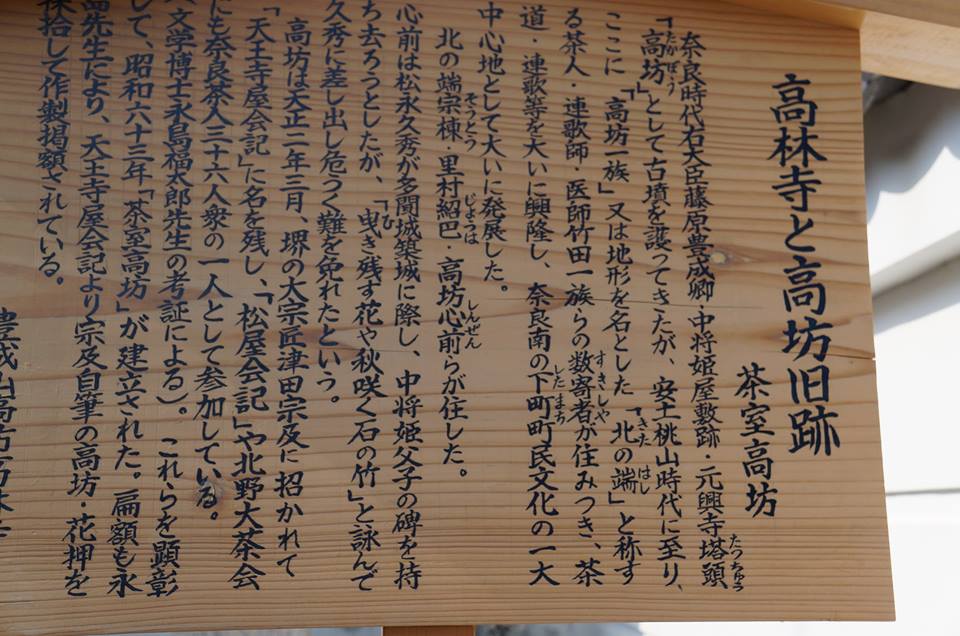 高林寺と高坊旧跡
茶室高坊
奈良時代右大臣藤原豊成卿・中将姫屋敷跡・元興寺塔頭
たつちゅう
「高坊」として古墳を護ってきたが、安土桃山時代に至り、
たかぼう
ここに「高坊一族」又は地形を名とした「北の端」と称す
きた はし
る茶人・連歌師・医師竹田一族らの数寄者が住みつき、茶
すきしや
道・連歌等を大いに興隆し、奈良南の下町町民文化の一大
したまち
中心地として大いに発展した。
北の端宗棟・里村紹巴・高坊心前らが住した。
そうとう じようは しんぜん
心前は松永久秀が多聞城築城に際し、中将姫父子の碑を持
ち去ろうとしたが、「曳き残す花や秋咲く石の竹」と詠んで
ひ
久秀に差し出し危うく難を免れたという。
高坊は天正二年三月、堺の大宗匠津田宗及に招かれて
「天王寺屋会記」に名を残し、「松屋会記」や北野大茶会
にも奈良茶人三十六人衆の一人として参加している。
文学博士永島福太郎先生の考証による)。これらを顕彰
して、昭和六十三年「茶室高坊」が建立された。扁額も永
島先生により、天王寺屋会記より宗及自筆の高坊・花押を
拾して作製掲額されている。
豊成山高坊高林寺